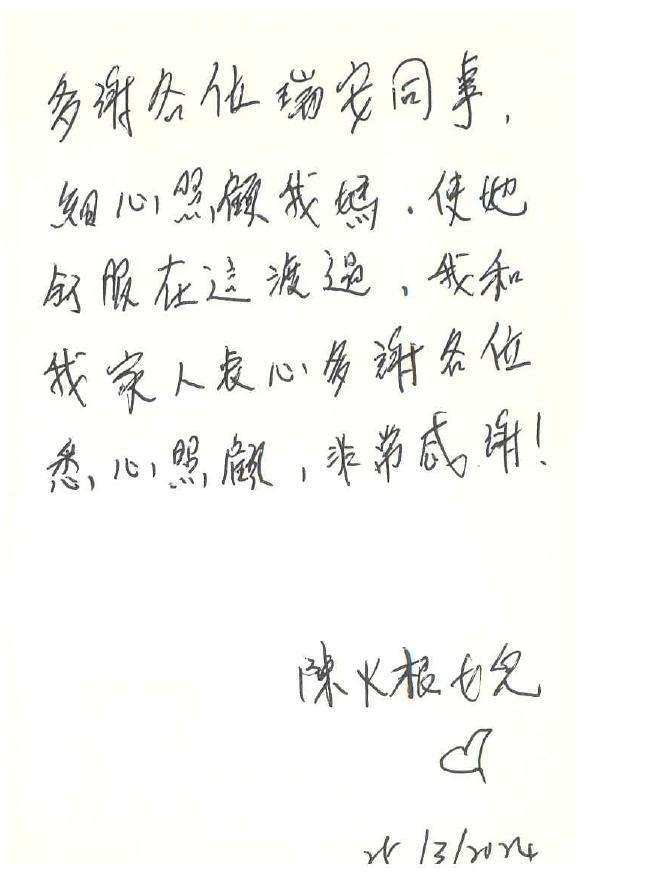 多謝各位瑞安同事，
細心照顧我媽，使她
舒服在這渡過，我和
我家人衷心多謝各位
悉心照顧，非常感謝！
陳火根女兒
25/3/2024